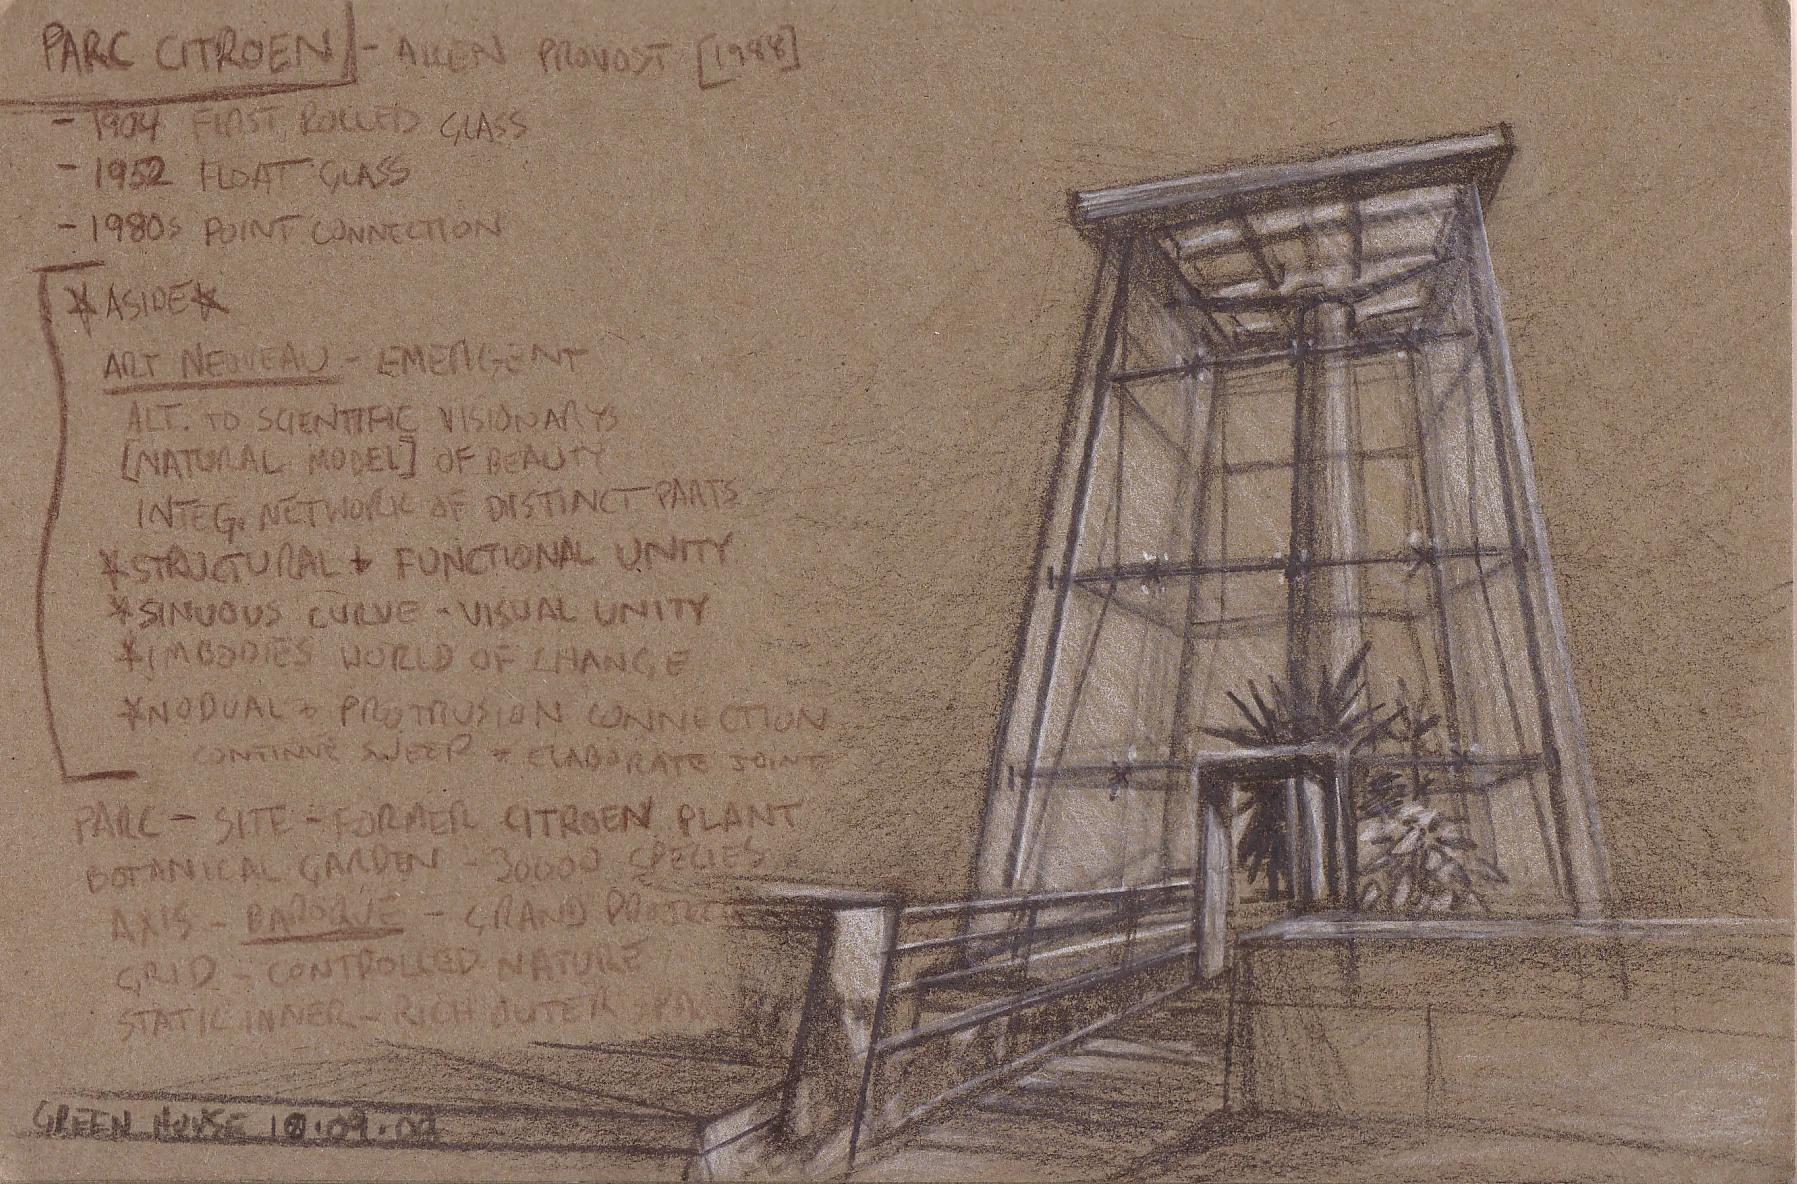 PARC CITROEN - ALLEN PROVOST [1988]
- 1904 FIRST ROLLED GLASS
- 1952 FLOAT GLASS
- 1980s POINT CONNECTION
*ASIDE*
ART NEUVEAU - EMERGENT
ALT. TO SCIENTIFIC VISIONARYS
[NATURAL MODEL] OF BEAUTY
INTEG. NETWORK OF DISTINCT PARTS
*STRUCTURAL + FUNCTIONAL UNITY
*SINUOUS CURVE - VISUAL UNITY
*IMBODIES WORLD OF CHANGE
*NODUAL + PROTRUSION CONNECTION
CONTINUE SWEEP + ELABORATE JOINT
PARC - SITE - FORMER CITROEN PLANT
BOTANICAL GARDEN - 30000 SPECIES
AXIS - BAROQUE - GRAND
GRID - CONTROLLED NATURE
STATIC INNER - RICH OUTER
GREEN HOUSE